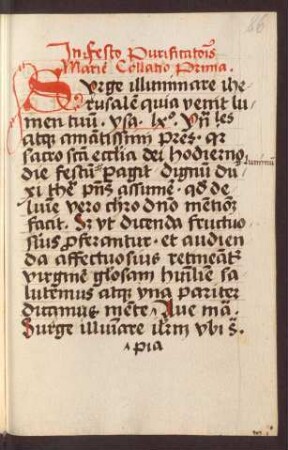 86
In festo Purificatiois
Marie Collatio Prima.
Surge illuminare ihe
rusalem quia venit lu
men tuu. ysa. lxº. Vn̄ les
atq; amātissimi pres. qr
sacrosctā ecclia dei hodierno
die festū pagit dignū du
xi the pn̄s assumē. qd de
luīe vero chro dno mētiōe
facit. Sz vt dicenda fructuo
sius proferantur. et audien
da affectuosius retineātr
virginē gl̄osam hūilīe sa
lutemus atq; vna pariter
dicamus mēte. Aue mā.
Surge illuīare ihrm vbi s̄.
pia